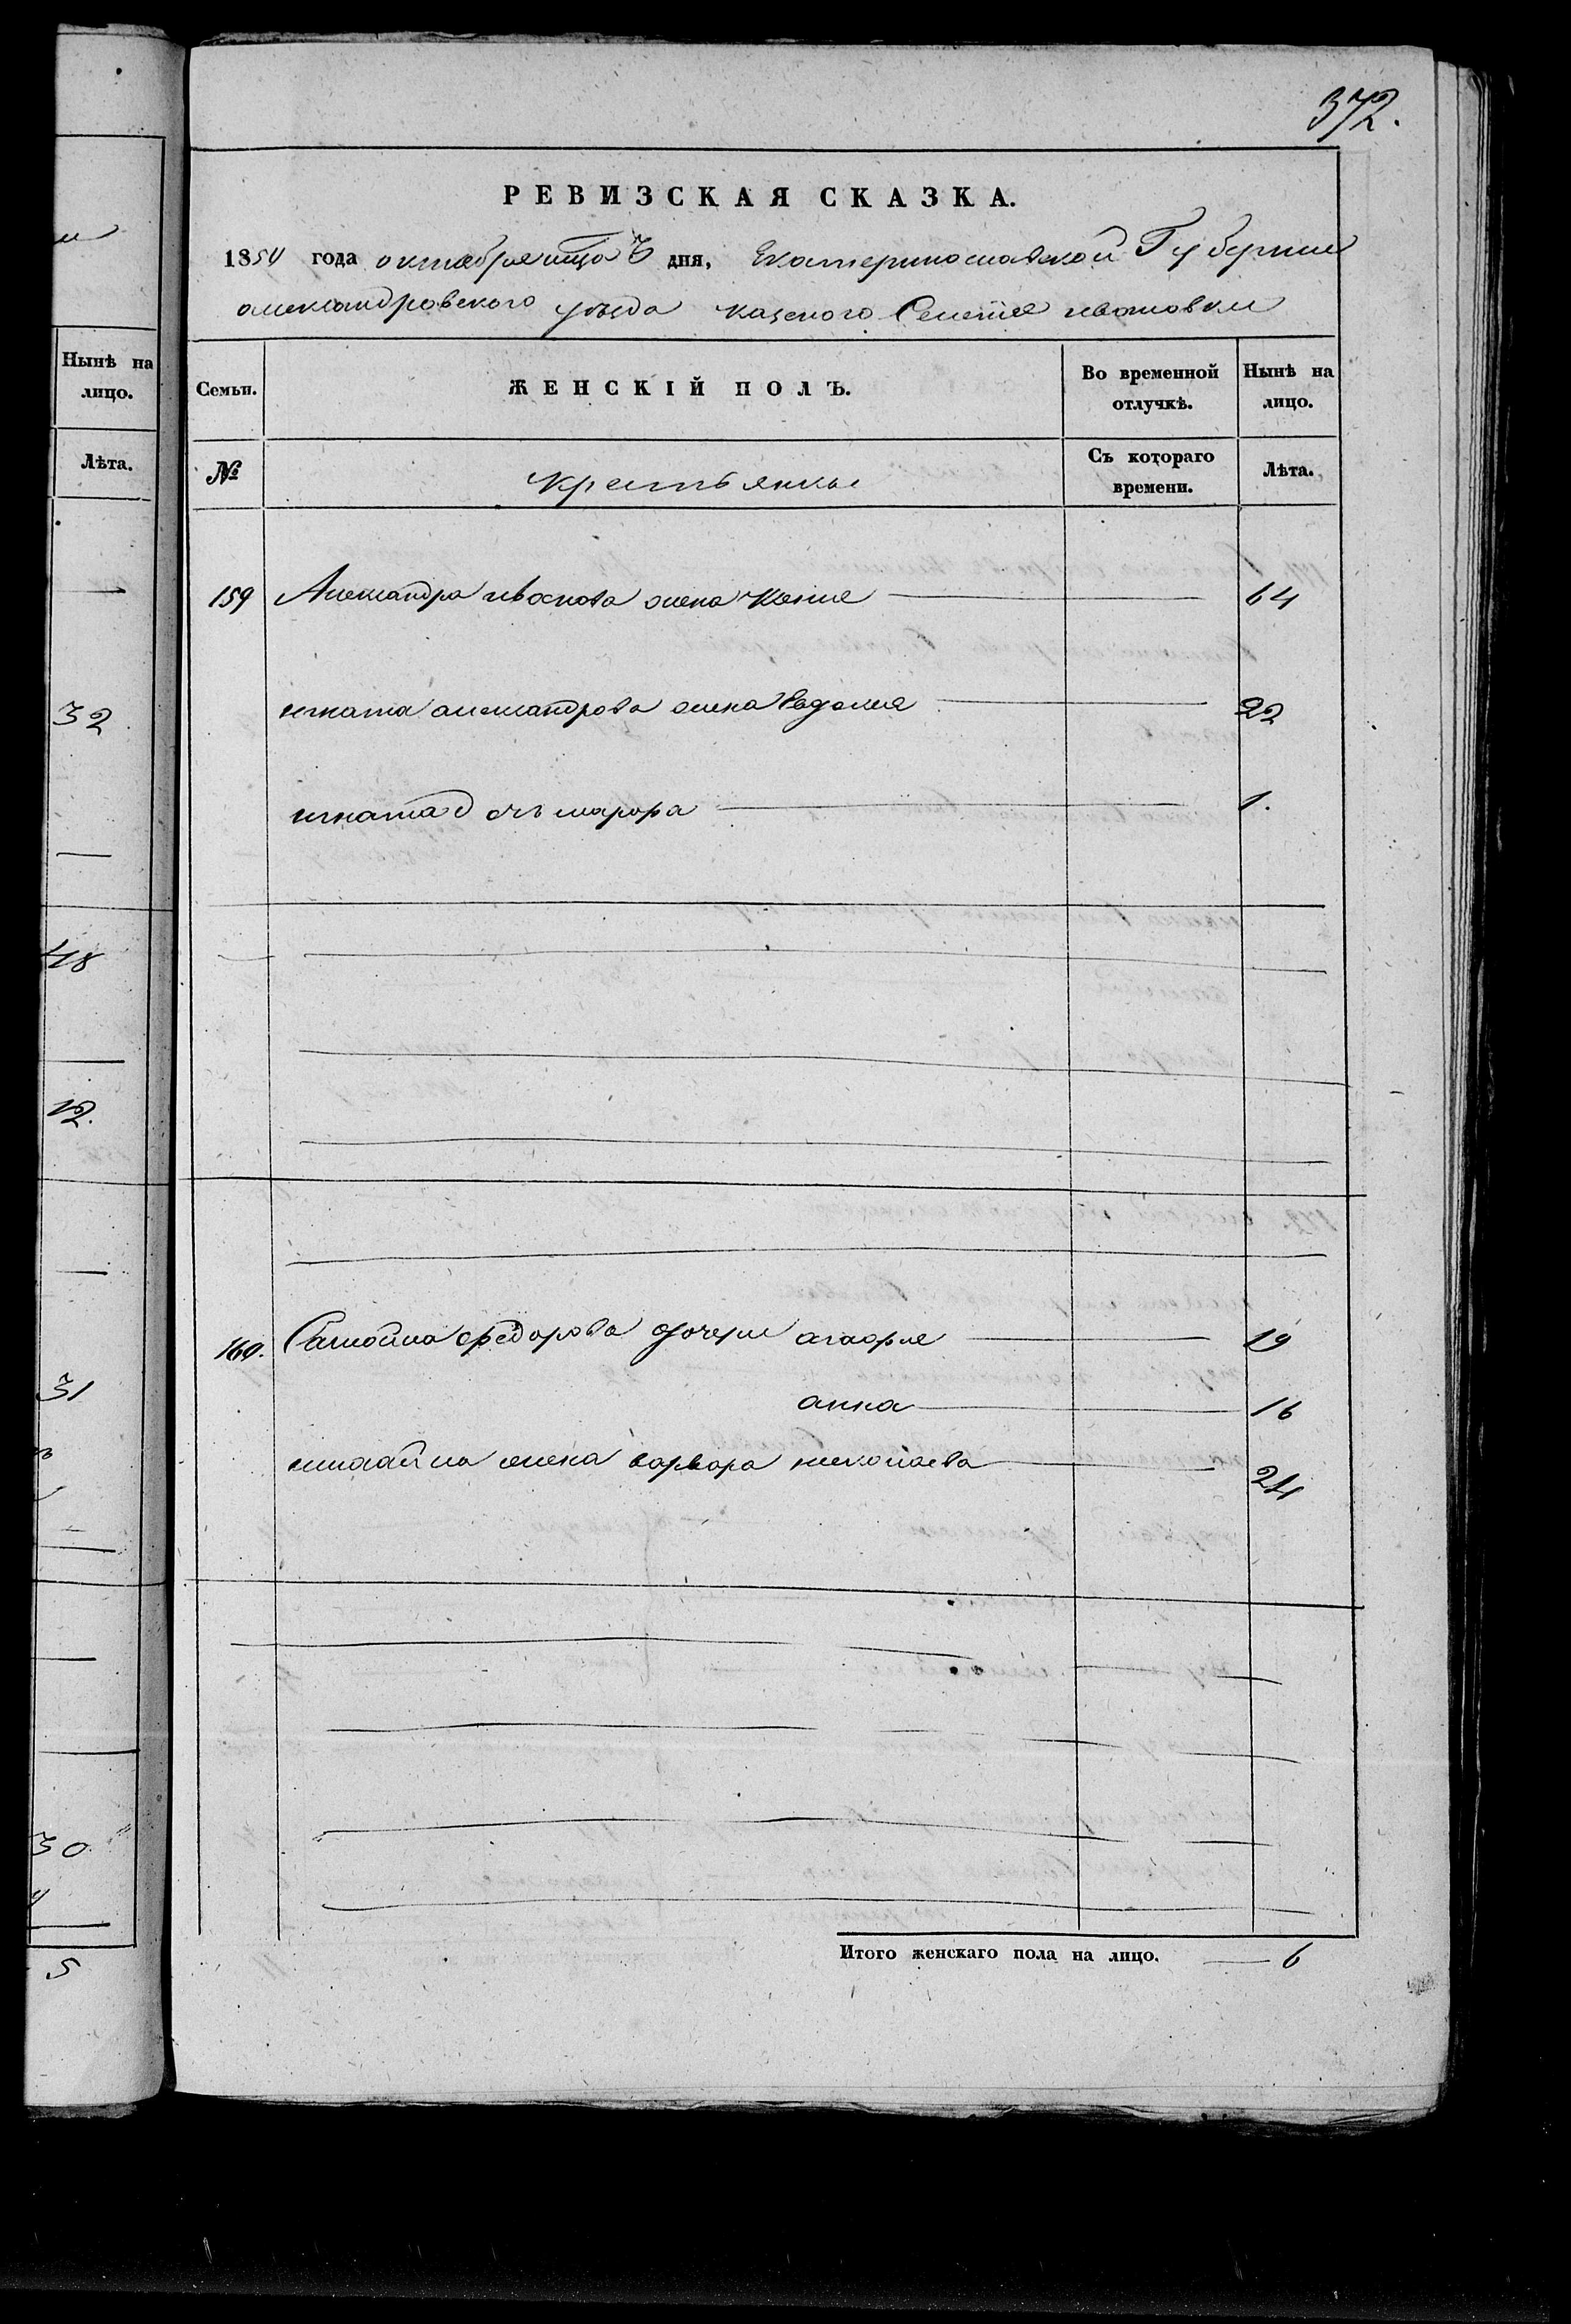 372.
РЕВИЗСКАЯ СКАЗКА.
1854 года октября дня, Екатеринославской Губернии
александровского уезда казеного Селения ивановки
Семьи.
ЖЕНСКІЙ ПОЛЪ.
Во временной отлучкѣ.
Нынѣ на лицо.
№
крестьянки
Съ котораго времени.
Лѣта.
159 Александра иванова жена 64
игната александрова жена Евдокия 22
игната дочь марфа 1.
160. Самойла федорова дочери агафия 19
анна 16
варвара николаева 24
Итого женскаго пола на лицо. 6
Нынѣ на лицо.
Лѣта.
32
48
12.
31
30
5